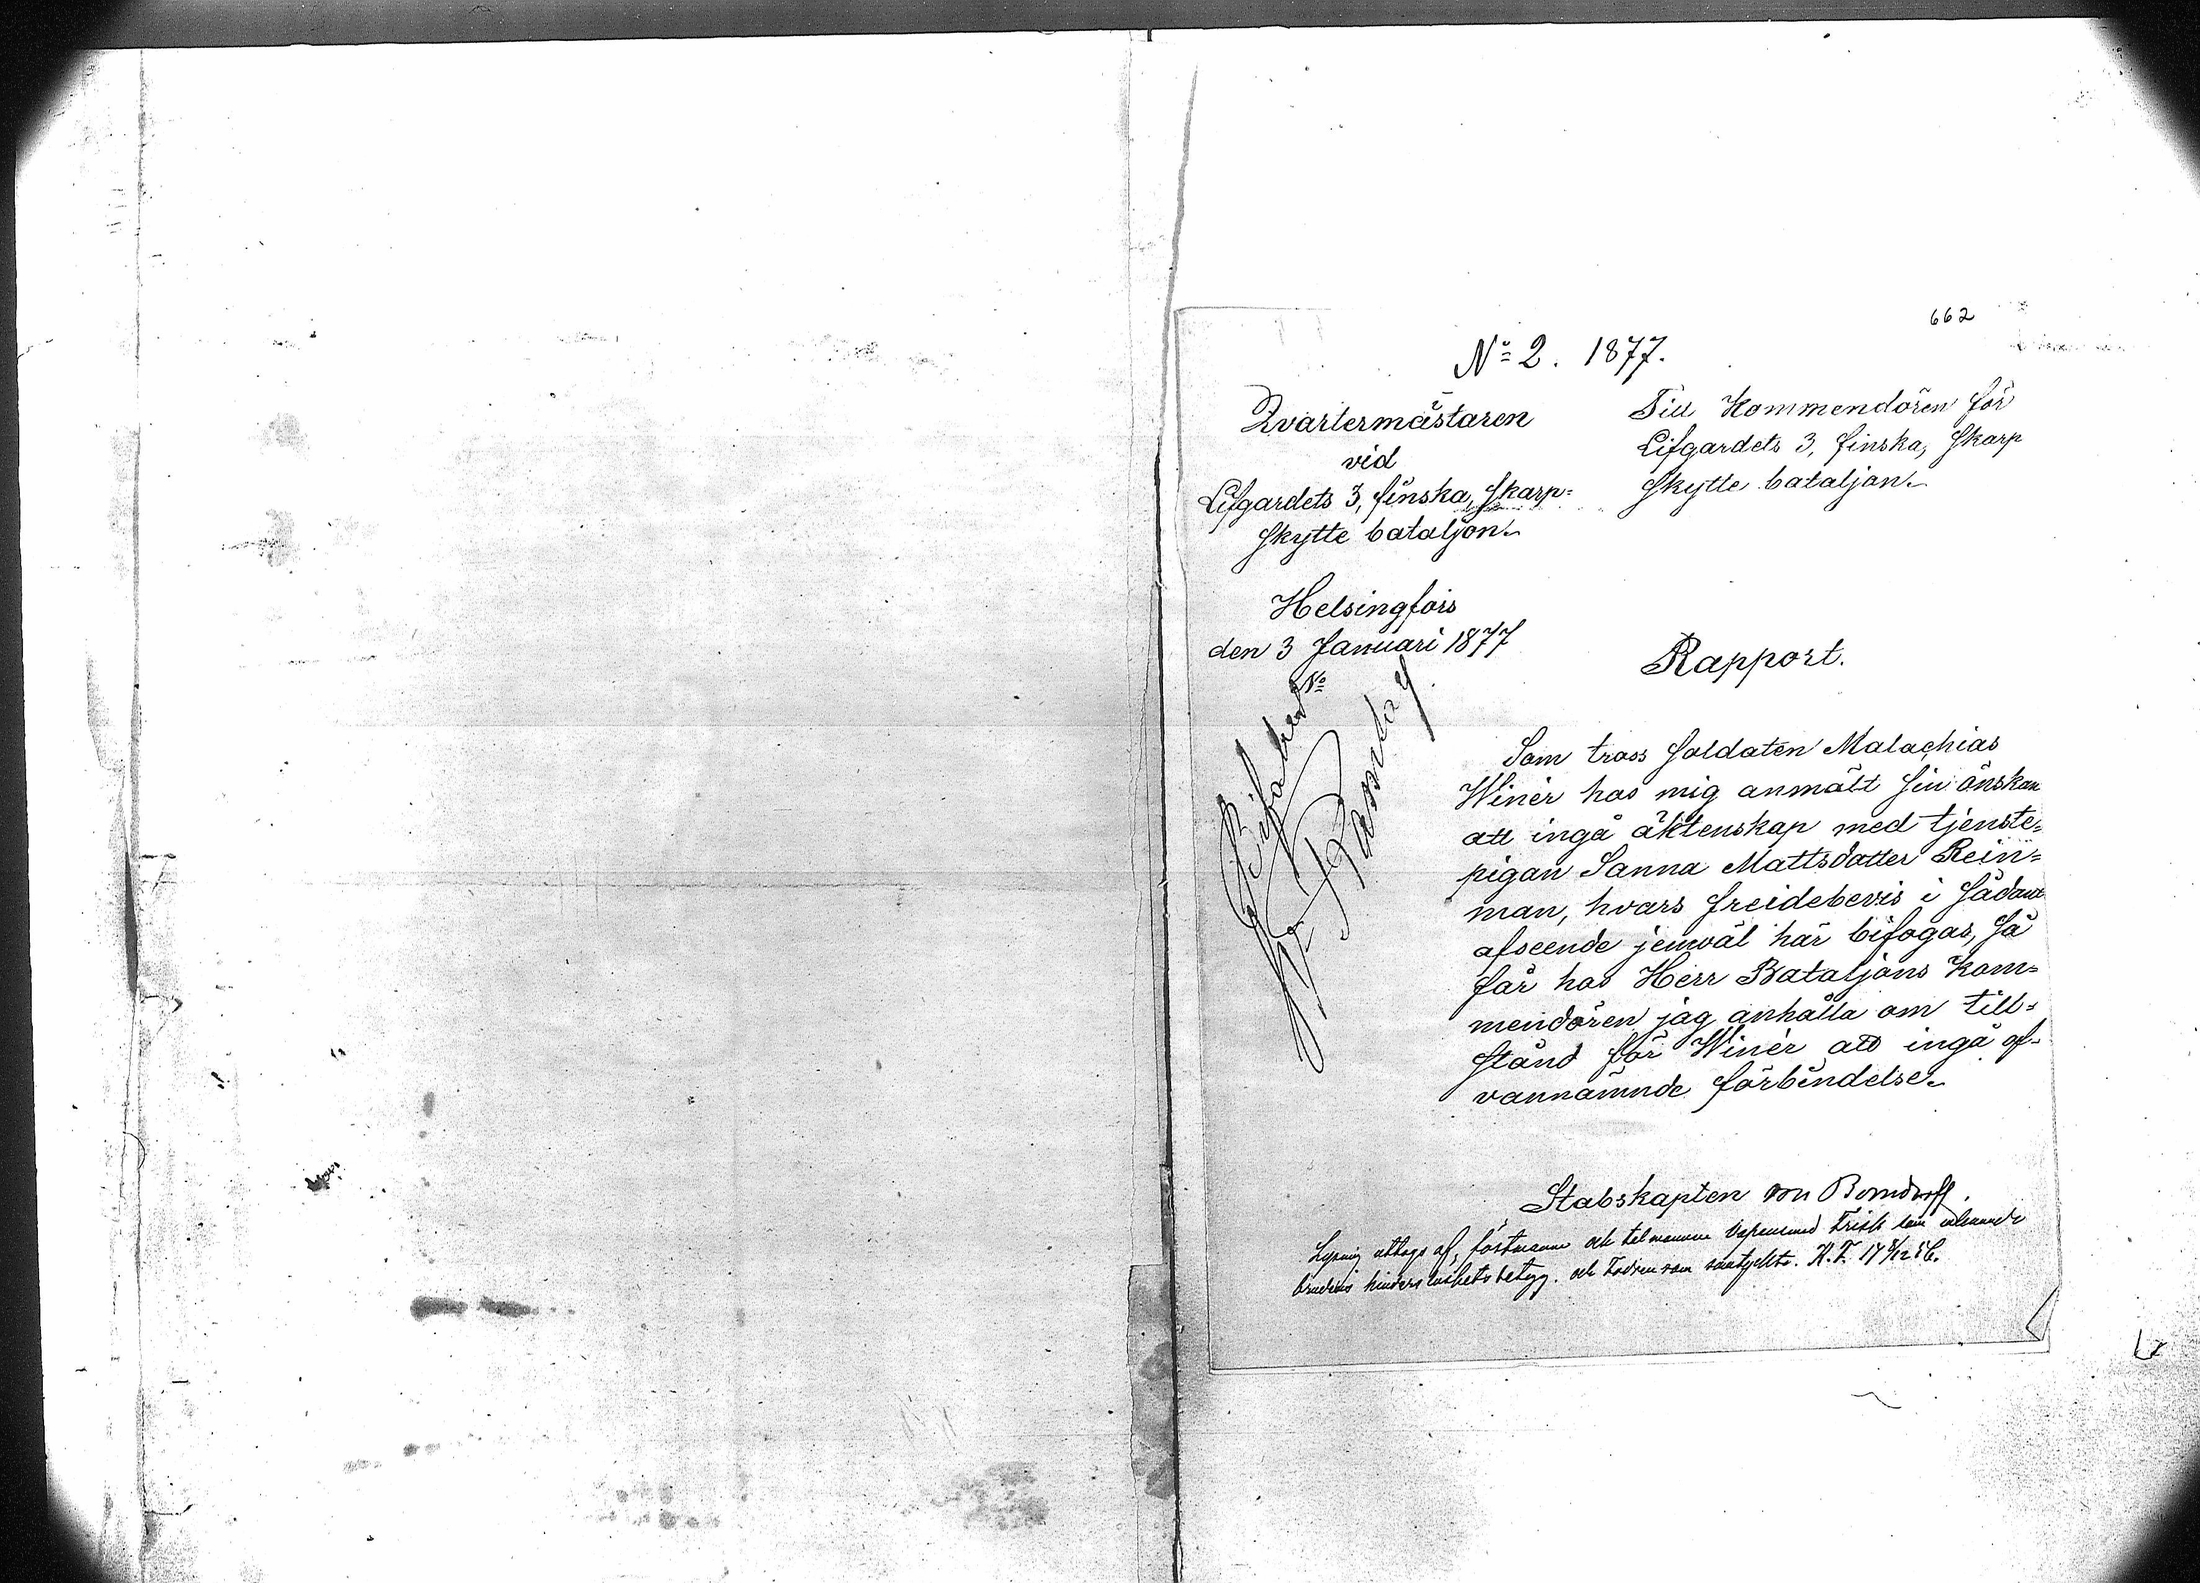 662
No 2. 1877.
Qvartermästaren
vid
Lifgardets 3, finska, Skarp=
skytte bataljon.
Helsingfors
den 3 Januari 1877
No
Till Kommendören för
Lifgardets 3, finska, Skarp
skytte bataljon.
Rapport.
Bifalles
Som tross soldaten Malachias
Winér hos mig anmält sin önskan
att ingå äktenskap med tjenste=
pigan Sanna Mattsdatter Rein=
man, hvars freidebevis i sådant
afseende jemväl här bifogas, så
får hos Herr Bataljons Kom=
mendören jag anhålla om till=
stånd för Winér att ingå of=
vannämnde förbindelse.
Stabskapten von
Lysning uttogs af
hinderslöshetsbetyg. och